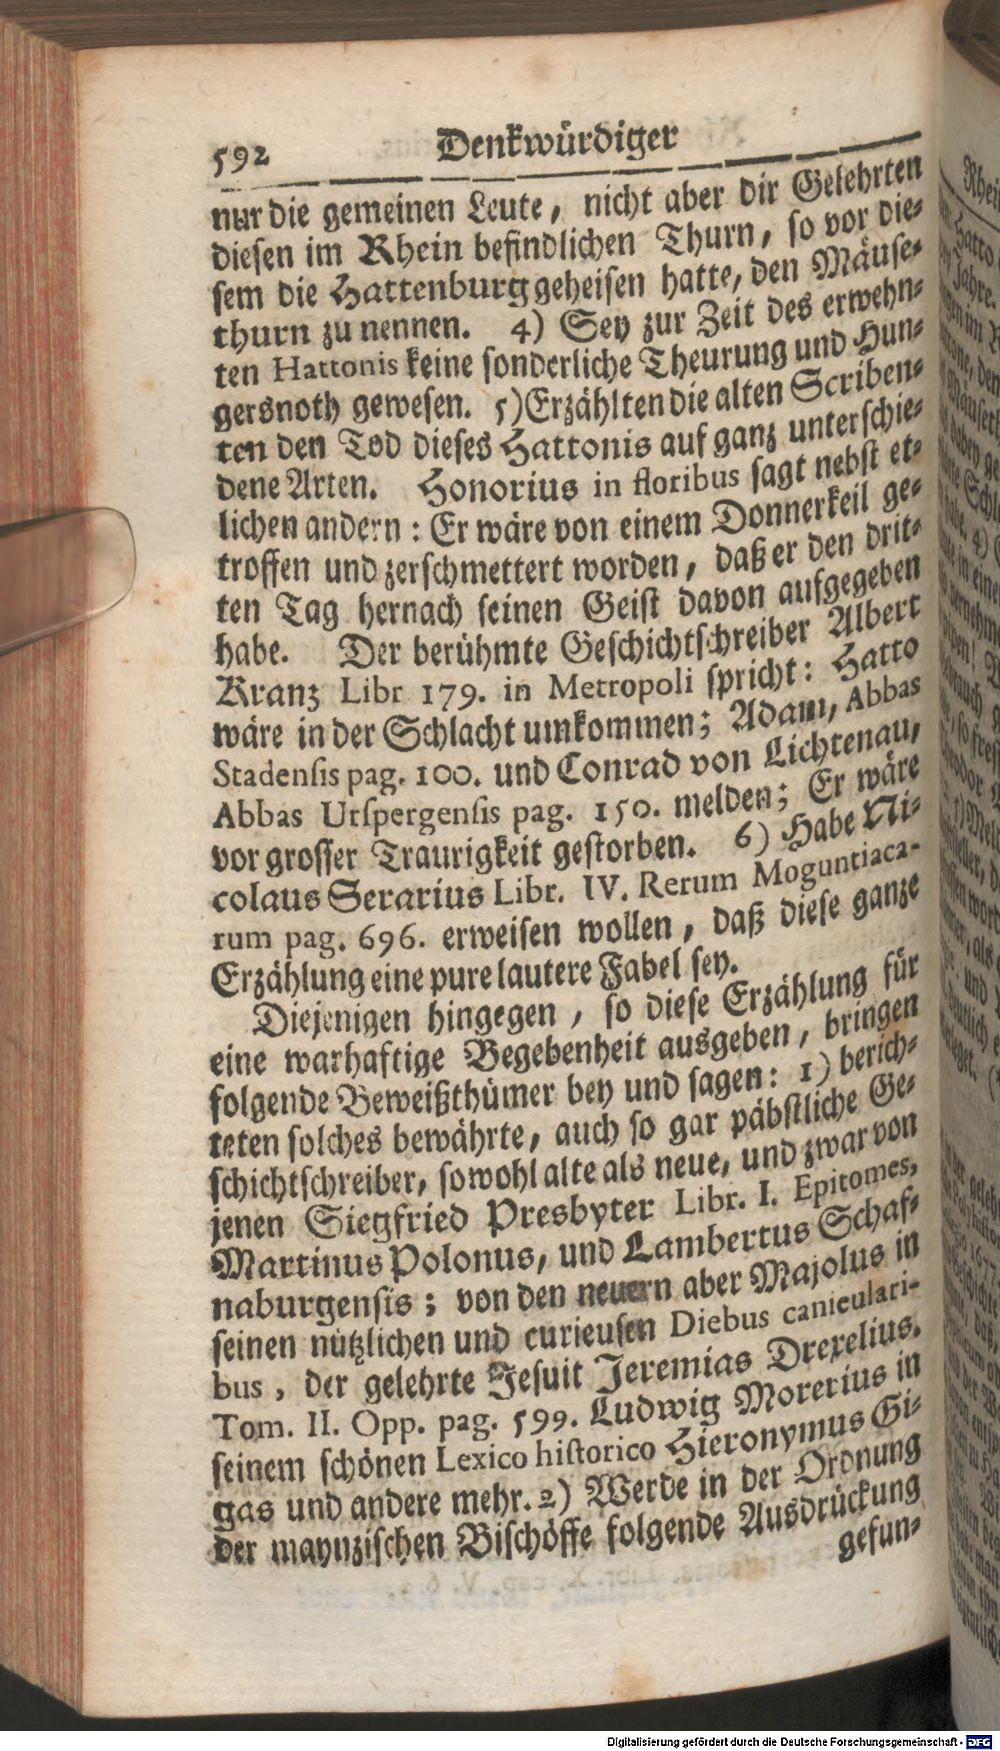 592 Denkwürdiger
nur die gemeinen Leute, nicht aber dir Gelehrten
diesen im Rhein befindlichen Thurn, so vor die-
sem die Hattenburg geheisen hatte, den Mäuse-
thurn zu nennen. 4) Sey zur Zeit des erwehn-
ten Hattonis keine sonderliche Theurung und Hun-
gersnoth gewesen. 5) Erzählten die alten Scriben-
ten den Tod dieses Hattonis auf ganz unterschie-
dene Arten. Honorius in floribus sagt nebst et-
lichen andern: Er wäre von einem Donnerkeil ge-
troffen und zerschmettert worden, daß er den drit-
ten Tag hernach seinen Geist davon aufgegeben
habe. Der berühmte Geschichtschreiber Albert
Kranz Libr 179. in Metropoli spricht: Hatto
wäre in der Schlacht umkommen; Adam, Abbas
Stadensis pag. 100. und Conrad von Lichtenau,
Abbas Urspergensis pag. 150. melden; Er wäre
vor grosser Traurigkeit gestorben. 6) Habe Ni-
colaus Serarius Libr. IV. Rerum Moguntiaca-
rum pag. 696. erweisen wollen, daß diese ganze
Erzählung eine pure lautere Fabel sey.
Diejenigen hingegen, so diese Erzählung für
eine warhaftige Begebenheit ausgeben, bringen
folgende Beweißthümer bey und sagen: 1) berich-
teten solches bewährte, auch so gar päbstliche Ge-
schichtschreiber, sowohl alte als neue, und zwar von
jenen Siegfried Presbyter Libr. I. Epitomes,
Martinus Polonus, und Lambertus Schaf-
naburgensis; von den neuern aber Majolus in
seinen nützlichen und curieusen Diebus caniculari-
bus, der gelehrte Jesuit Jeremias Drexelius.
Tom. II. Opp. pag. 599. Ludwig Morerius in
seinem schönen Lexico historico Hieronymus Gi-
gas und andere mehr. 2) Werde in der Ordnung
der maynzischen Bischöffe folgende Ausdrückung
gefun-
Digitalisierung gefördert durch die Deutsche Forschungsgemeinschaft - DFG